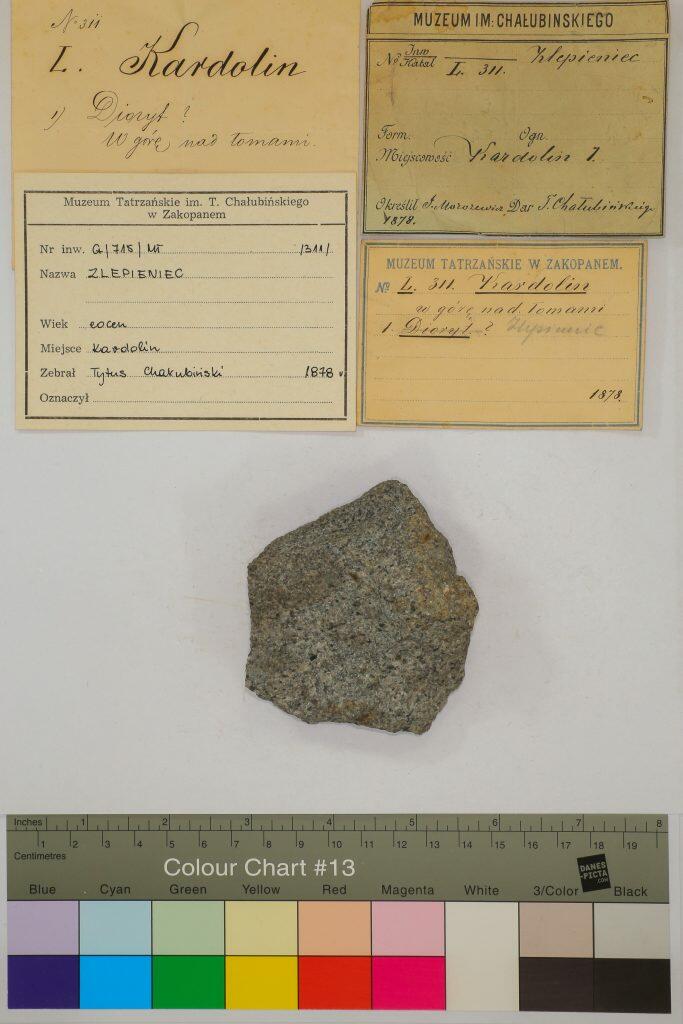 № 311
L. Kardolin
1) Dioryt ?
W górę nad łomami.
MUZEUM IM: CHAŁUBINSKIEGO
№ Inw Katal L. 311. Zlepieniec
Form. Ogn.
Miejscowość Kardolin 1.
Określił J. Morozewicz Dar T. Chałubińskiego
1878.
Muzeum Tatrzańskie im. T. Chałubińskiego
w Zakopanem
Nr inw. G/715/MT /311/
Nazwa ZLEPIENIEC
Wiek eocen
Miejsce Kardolin
Zebrał Tytus Chałubiński 1878 r.
Oznaczył
MUZEUM TATRZAŃSKIE W ZAKOPANEM.
№ L. 311. Kardolin
w górę nad łomami
1. Dioryt ? Zlepieniec
1878.
Inches 1 2 3 4 5 6 7 8
1 2 3 4 5 6 7 8 9 10 11 12 13 14 15 16 17 18 19
Centimetres
Colour Chart #13
DANES-PICTA.COM
Blue Cyan Green Yellow Red Magenta White 3/Color Black